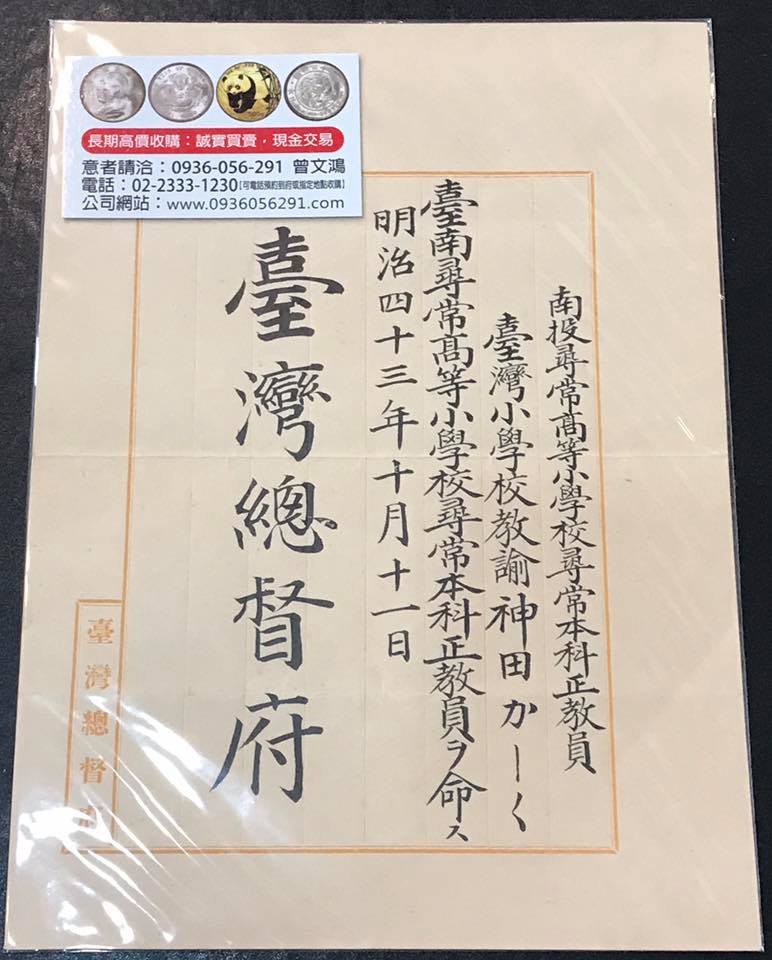 長期高價收購：誠實買賣，現金交易
意者請洽：0936-056-291 曾文鴻
電話：02-2333-1230【可電話預約到府或指定地點收購】
公司網站：www.0936056291.com
南投尋常高等小學校尋常本科正教員
臺灣小學校教諭神田かーく
臺南尋常高等小學校尋常本科正教員ヲ命ス
明治四十三年十月十一日
臺灣總督府
臺灣總督府